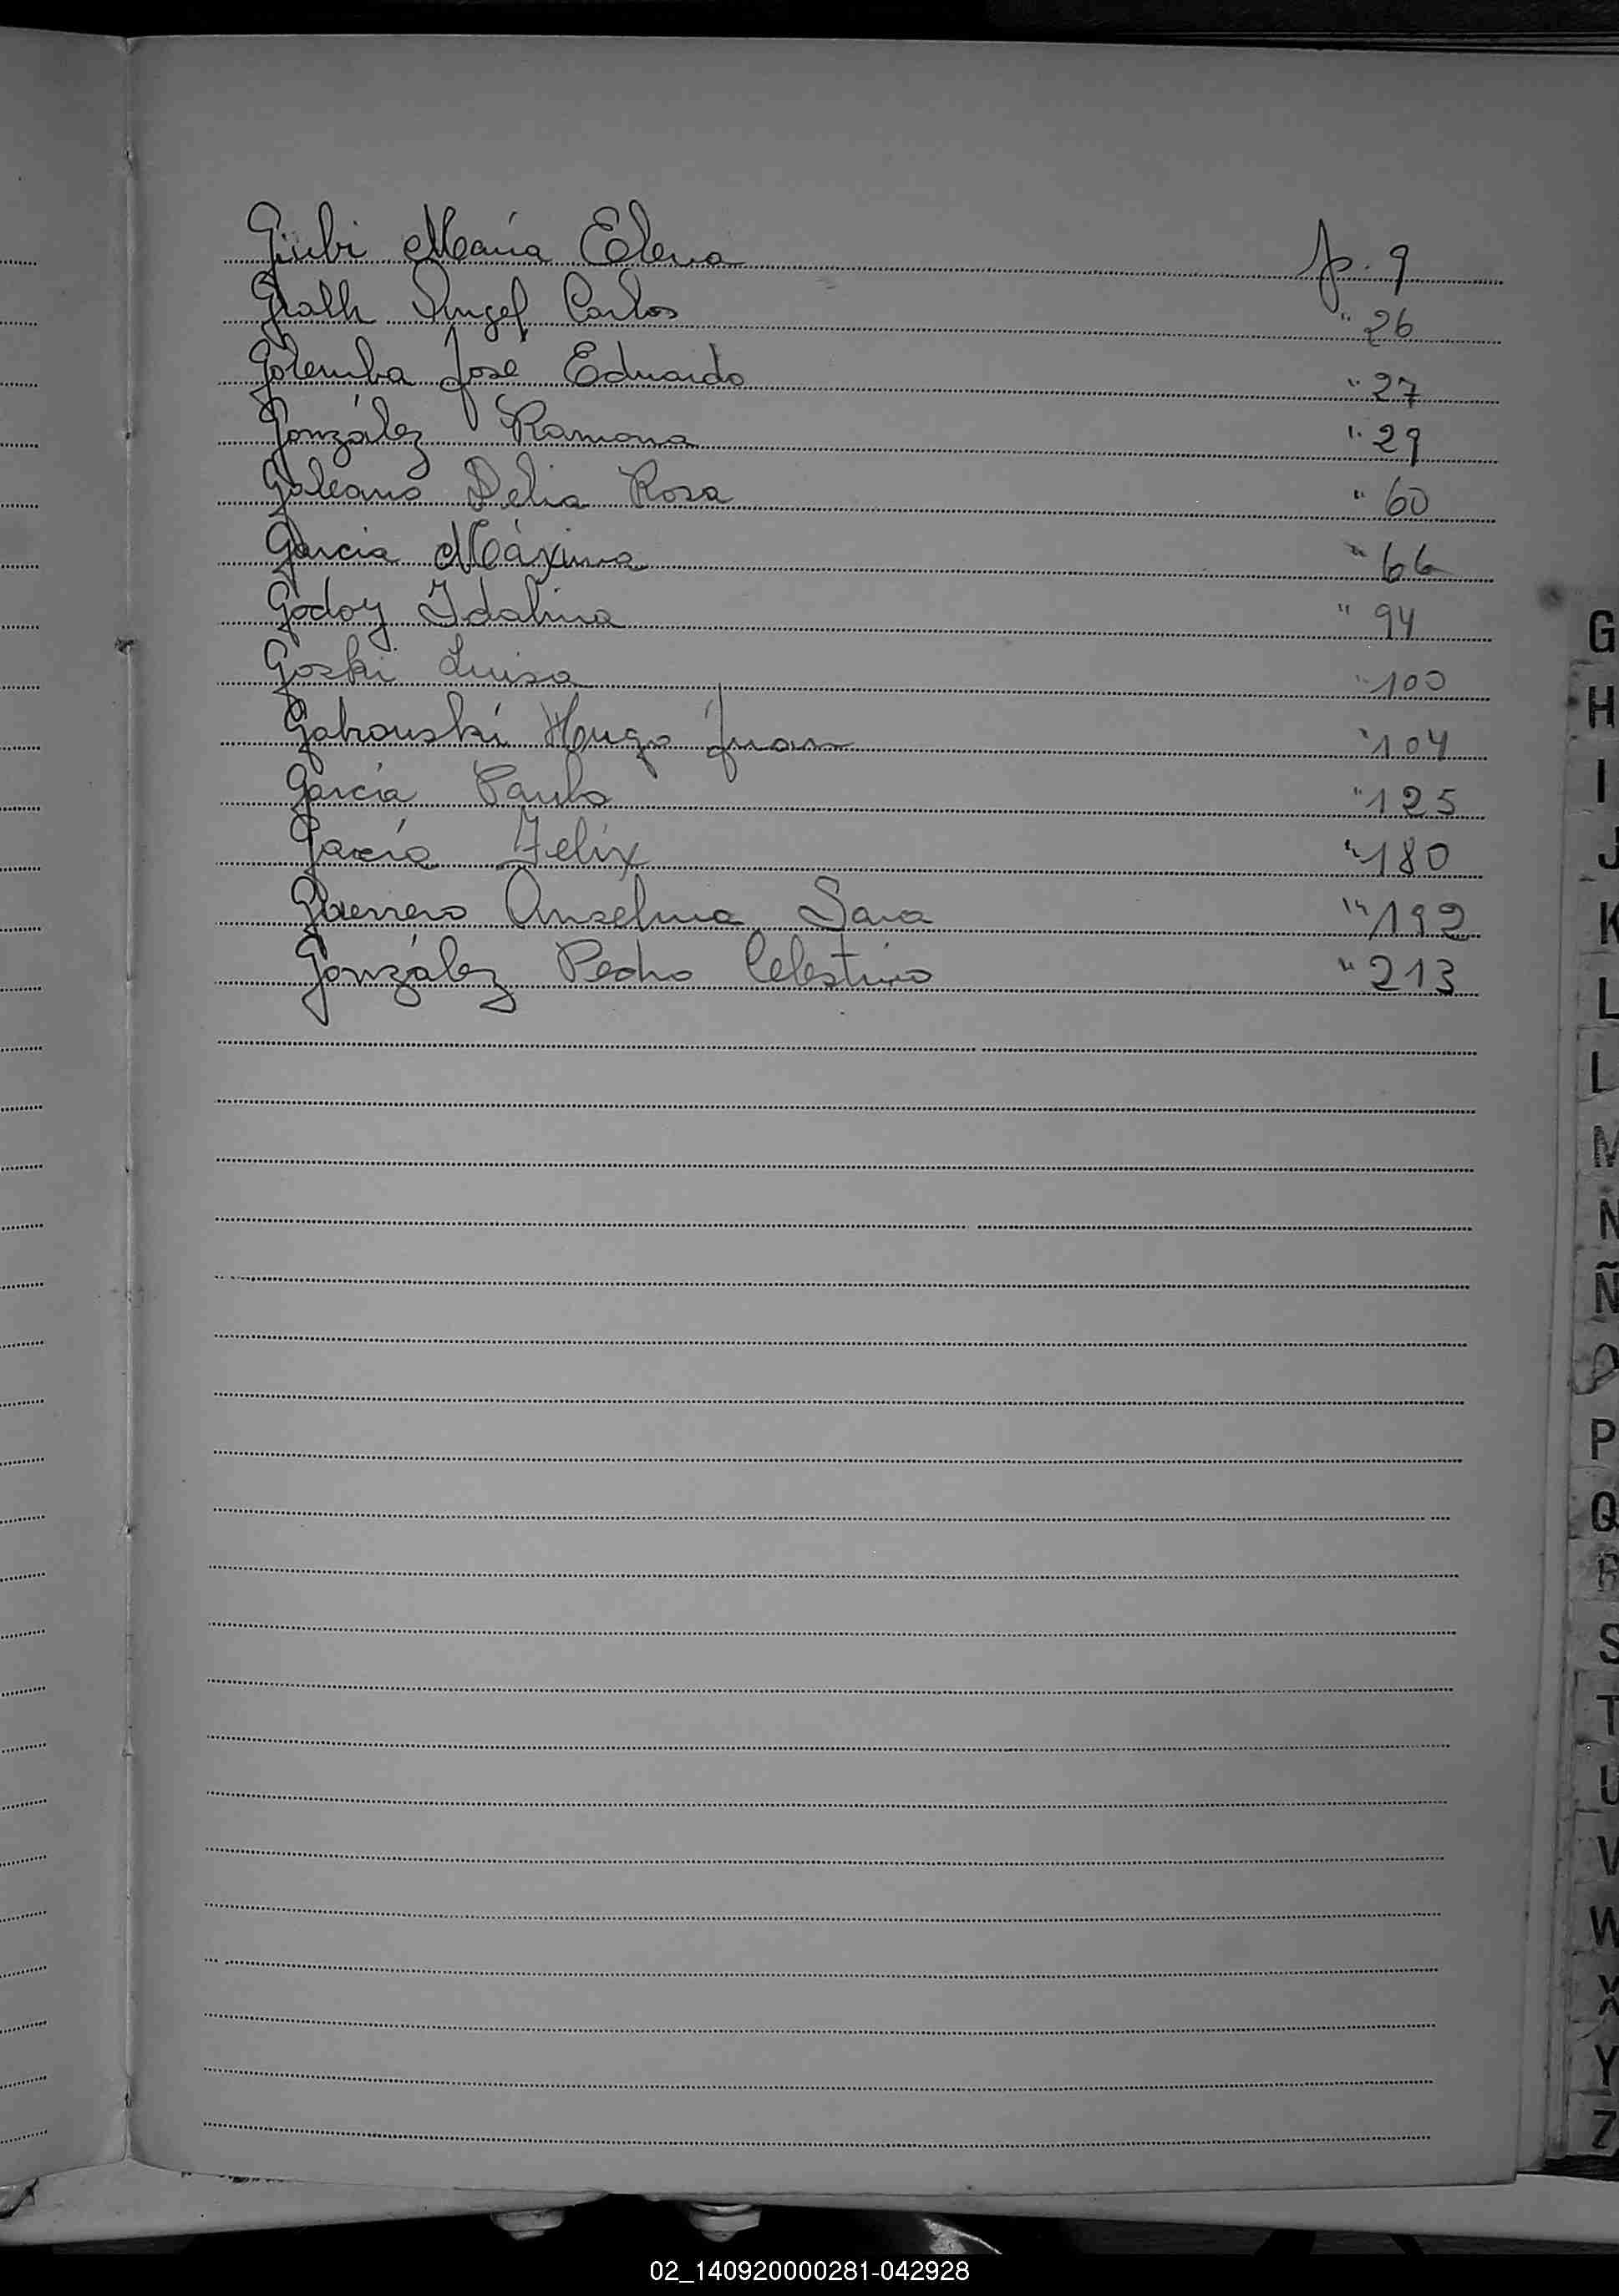 Giubi María Elena p. 9
Grath Angel Carlos " 26
Golemba José Eduardo " 27
González Ramona " 29
Galeano Delia Rosa " 60
Garcia Máxima " 66
Godoy Idalina " 94
Goski Luisa " 100
Gabrouski Hugo Juan " 104
García Paulo " 125
García Felix " 180
Guerrero Anselma Sara " 192
González Pedro Celestino " 213
G
H
I
J
K
L
L
M
N
Ñ
O
P
Q
R
S
T
U
V
W
X
Y
Z
02_140920000281-042928